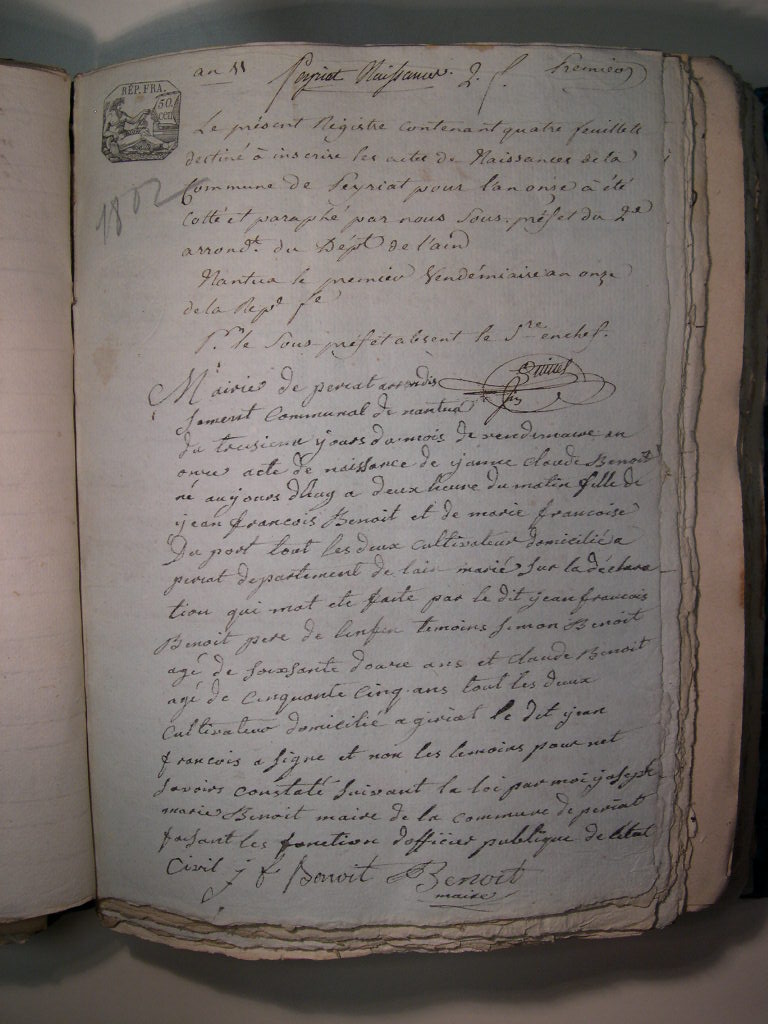 an 11 Peyriat Naissances. 2. f. Premier
RÉP. FRA.
50.
cen
1802
Le présent Registre contenant quatre feuillets
destiné à inscrire les actes de Naissances de la
Commune de Peyriat pour l'an onze à été
cotté et paraphé par nous Sous-préfet du 2e
arrondt. du Dépt de l'ain
Nantua le premier Vendémiaire an onze
de la Repe fe
Pr. le Sous préfet absent le Sre en chef.
Mairie de periat arrondis
sement Communal de nantua
du troisieme jours du mois de vendemiaire an
onze acte de naissance de janne Claude Benoit
né aujours dhuy a deux heure du matin fille de
jean francois Benoit et de marie francoise
Du port tout les deux cultivateur domicilié a
periat departement de lain marié sur la déclara-
tion qui mat ete faite par le dit jean francois
Benoit pere de lenfen temoins simon Benoit
agé de soixsante douze ans et Claude Benoit
agé de cinquante cinq ans tout les deux
cultivateur domicilié a piriat le dit jean
francois a signe et non les temoins pour net
savoirs constaté suivant la loi par moi joseph
marie Benoit maire de la commune de periat
faisant les fonction dofficier publique de letat
Civil j f Benoit Benoit
maire